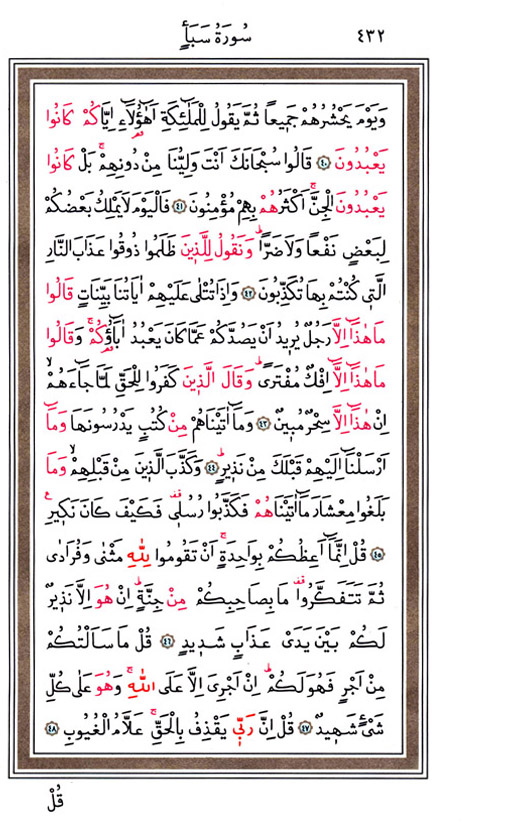 ٤٣٢ سُورَةُ سَبَأٍ
وَيَوْمَ يَحْشُرُهُمْ جَمٖيعاً ثُمَّ يَقُولُ لِلْمَلٰٓئِكَةِ اَهٰٓؤُ۬لَٓاءِ اِيَّاكُمْ كَانُوا
يَعْبُدُونَ ﴿٤٠﴾ قَالُوا سُبْحَانَكَ اَنْتَ وَلِيُّنَا مِنْ دُونِهِمْۚ بَلْ كَانُوا
يَعْبُدُونَ الْجِنَّۚ اَكْثَرُهُمْ بِهِمْ مُؤْمِنُونَ ﴿٤١﴾ فَالْيَوْمَ لَا يَمْلِكُ بَعْضُكُمْ
لِبَعْضٍ نَفْعاً وَلَا ضَراًّؕ وَنَقُولُ لِلَّذٖينَ ظَلَمُوا ذُوقُوا عَذَابَ النَّارِ
الَّتٖي كُنْتُمْ بِهَا تُكَذِّبُونَ ﴿٤٢﴾ وَاِذَا تُتْلٰى عَلَيْهِمْ اٰيَاتُنَا بَيِّنَاتٍ قَالُوا
مَا هٰذَٓا اِلَّا رَجُلٌ يُرٖيدُ اَنْ يَصُدَّكُمْ عَمَّا كَانَ يَعْبُدُ اٰبَٓاؤُ۬كُمْۚ وَقَالُوا
مَا هٰذَٓا اِلَّٓا اِفْكٌ مُفْتَرىًؕ وَقَالَ الَّذٖينَ كَفَرُوا لِلْحَقِّ لَمَّا جَٓاءَهُمْۙ
اِنْ هٰذَٓا اِلَّا سِحْرٌ مُبٖينٌ ﴿٤٣﴾ وَمَٓا اٰتَيْنَاهُمْ مِنْ كُتُبٍ يَدْرُسُونَهَا وَمَٓا
اَرْسَلْنَٓا اِلَيْهِمْ قَبْلَكَ مِنْ نَذٖيرٍؕ ﴿٤٤﴾ وَكَذَّبَ الَّذٖينَ مِنْ قَبْلِهِمْۙ وَمَا
بَلَغُوا مِعْشَارَ مَٓا اٰتَيْنَاهُمْ فَكَذَّبُوا رُسُلٖي۠ فَكَيْفَ كَانَ نَكٖيرِ۟
﴿٤٥﴾ قُلْ اِنَّمَٓا اَعِظُكُمْ بِوَاحِدَةٍۚ اَنْ تَقُومُوا لِلّٰهِ مَثْنٰى وَفُرَادٰى
ثُمَّ تَتَفَكَّرُوا۠ مَا بِصَاحِبِكُمْ مِنْ جِنَّةٍؕ اِنْ هُوَ اِلَّا نَذٖيرٌ
لَكُمْ بَيْنَ يَدَيْ عَذَابٍ شَدٖيدٍ ﴿٤٦﴾ قُلْ مَا سَاَلْتُكُمْ
مِنْ اَجْرٍ فَهُوَ لَكُمْؕ اِنْ اَجْرِيَ اِلَّا عَلَى اللّٰهِۚ وَهُوَ عَلٰى كُلِّ
شَيْءٍ شَهٖيدٌ ﴿٤٧﴾ قُلْ اِنَّ رَبّٖي يَقْذِفُ بِالْحَقِّۚ عَلَّامُ الْغُيُوبِ ﴿٤٨﴾
قُلْ